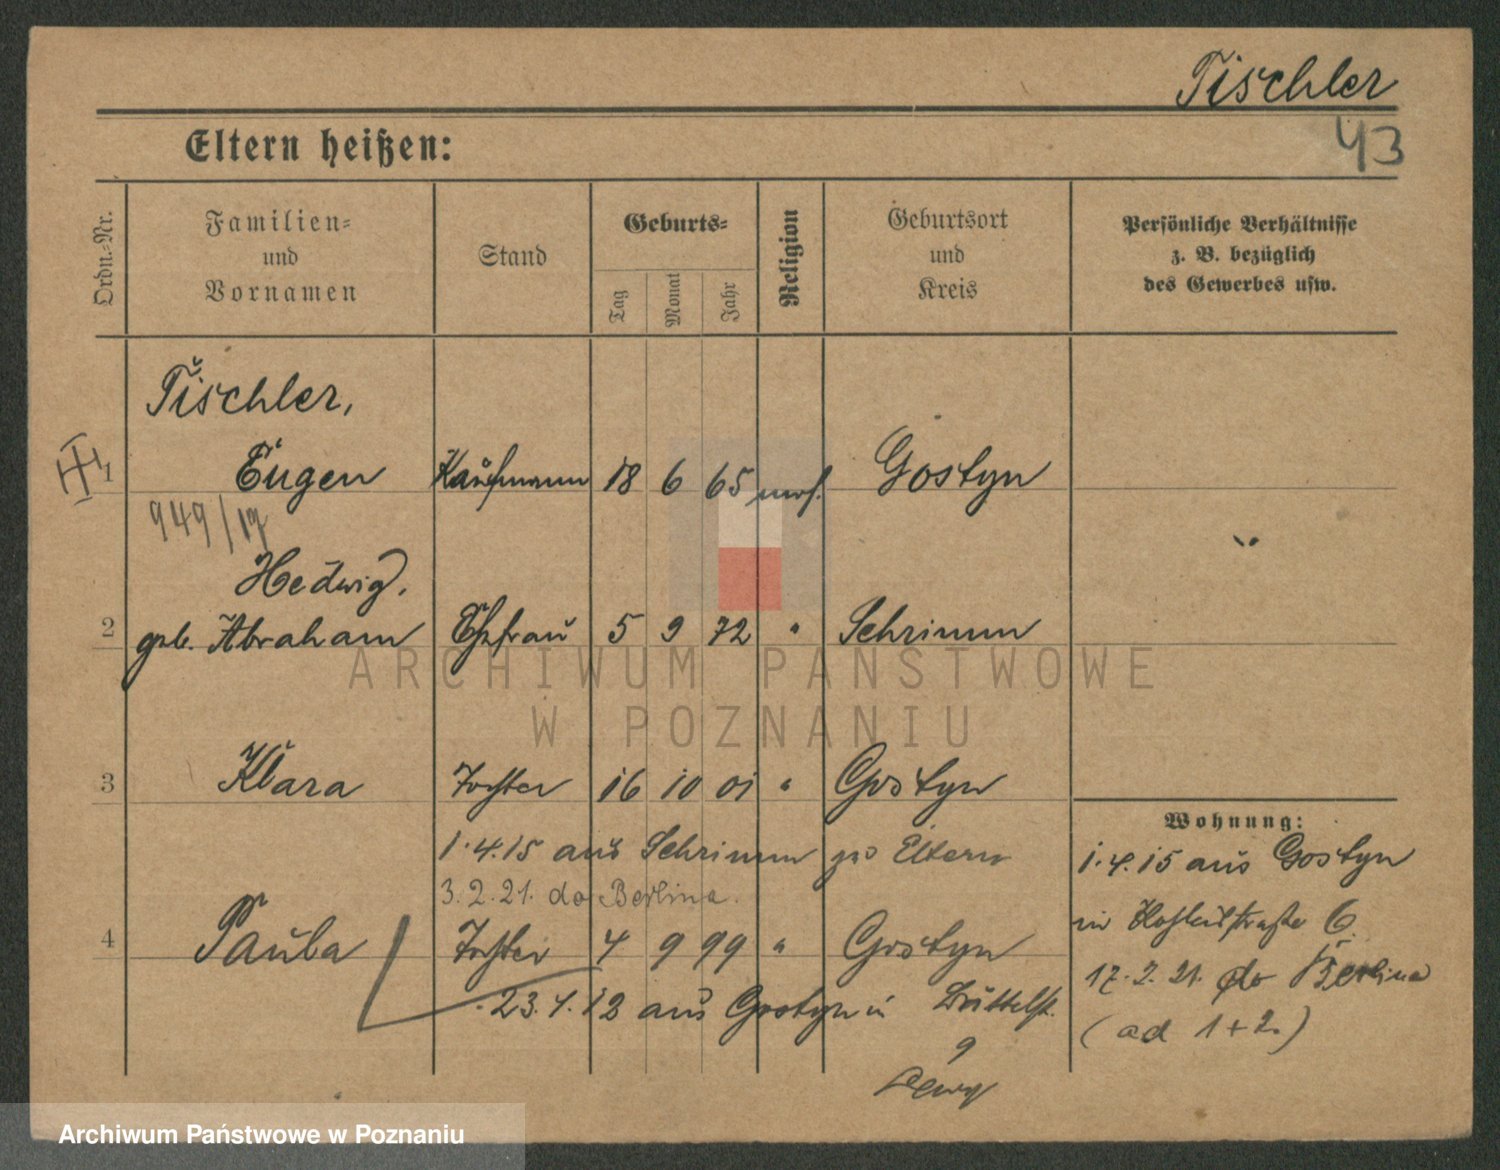 Tischler
43
Eltern heißen:
Ordn.-Nr.
Familien-
und
Vornamen
Stand
Geburts-
Tag
Monat
Jahr
Religion
Geburtsort
und
Kreis
Persönliche Verhältnisse
z. B. bezüglich
des Gewerbes usw.
Tischler,
1 Eugen Kaufmann 18 6 65 mos. Gostyn
949/17
Hedwig,
2 geb. Abraham Ehefrau 5 9 72 " Schrimm
ARCHIWUM PAŃSTWOWE
W POZNANIU
3 Klara Tochter 16 10 01 " Gostyn
1.4.15 aus Schrimm zu Eltern
3.2.21. do Berlina.
4 Paula Tochter 4 9 99 " Gostyn
23.4.12 aus Gostyn in Büttelst.
9
Lewy
Wohnung:
1.4.15 aus Gostyn
in 6
17.2.21. do Berlina
(ad 1+2.)
Archiwum Państwowe w Poznaniu